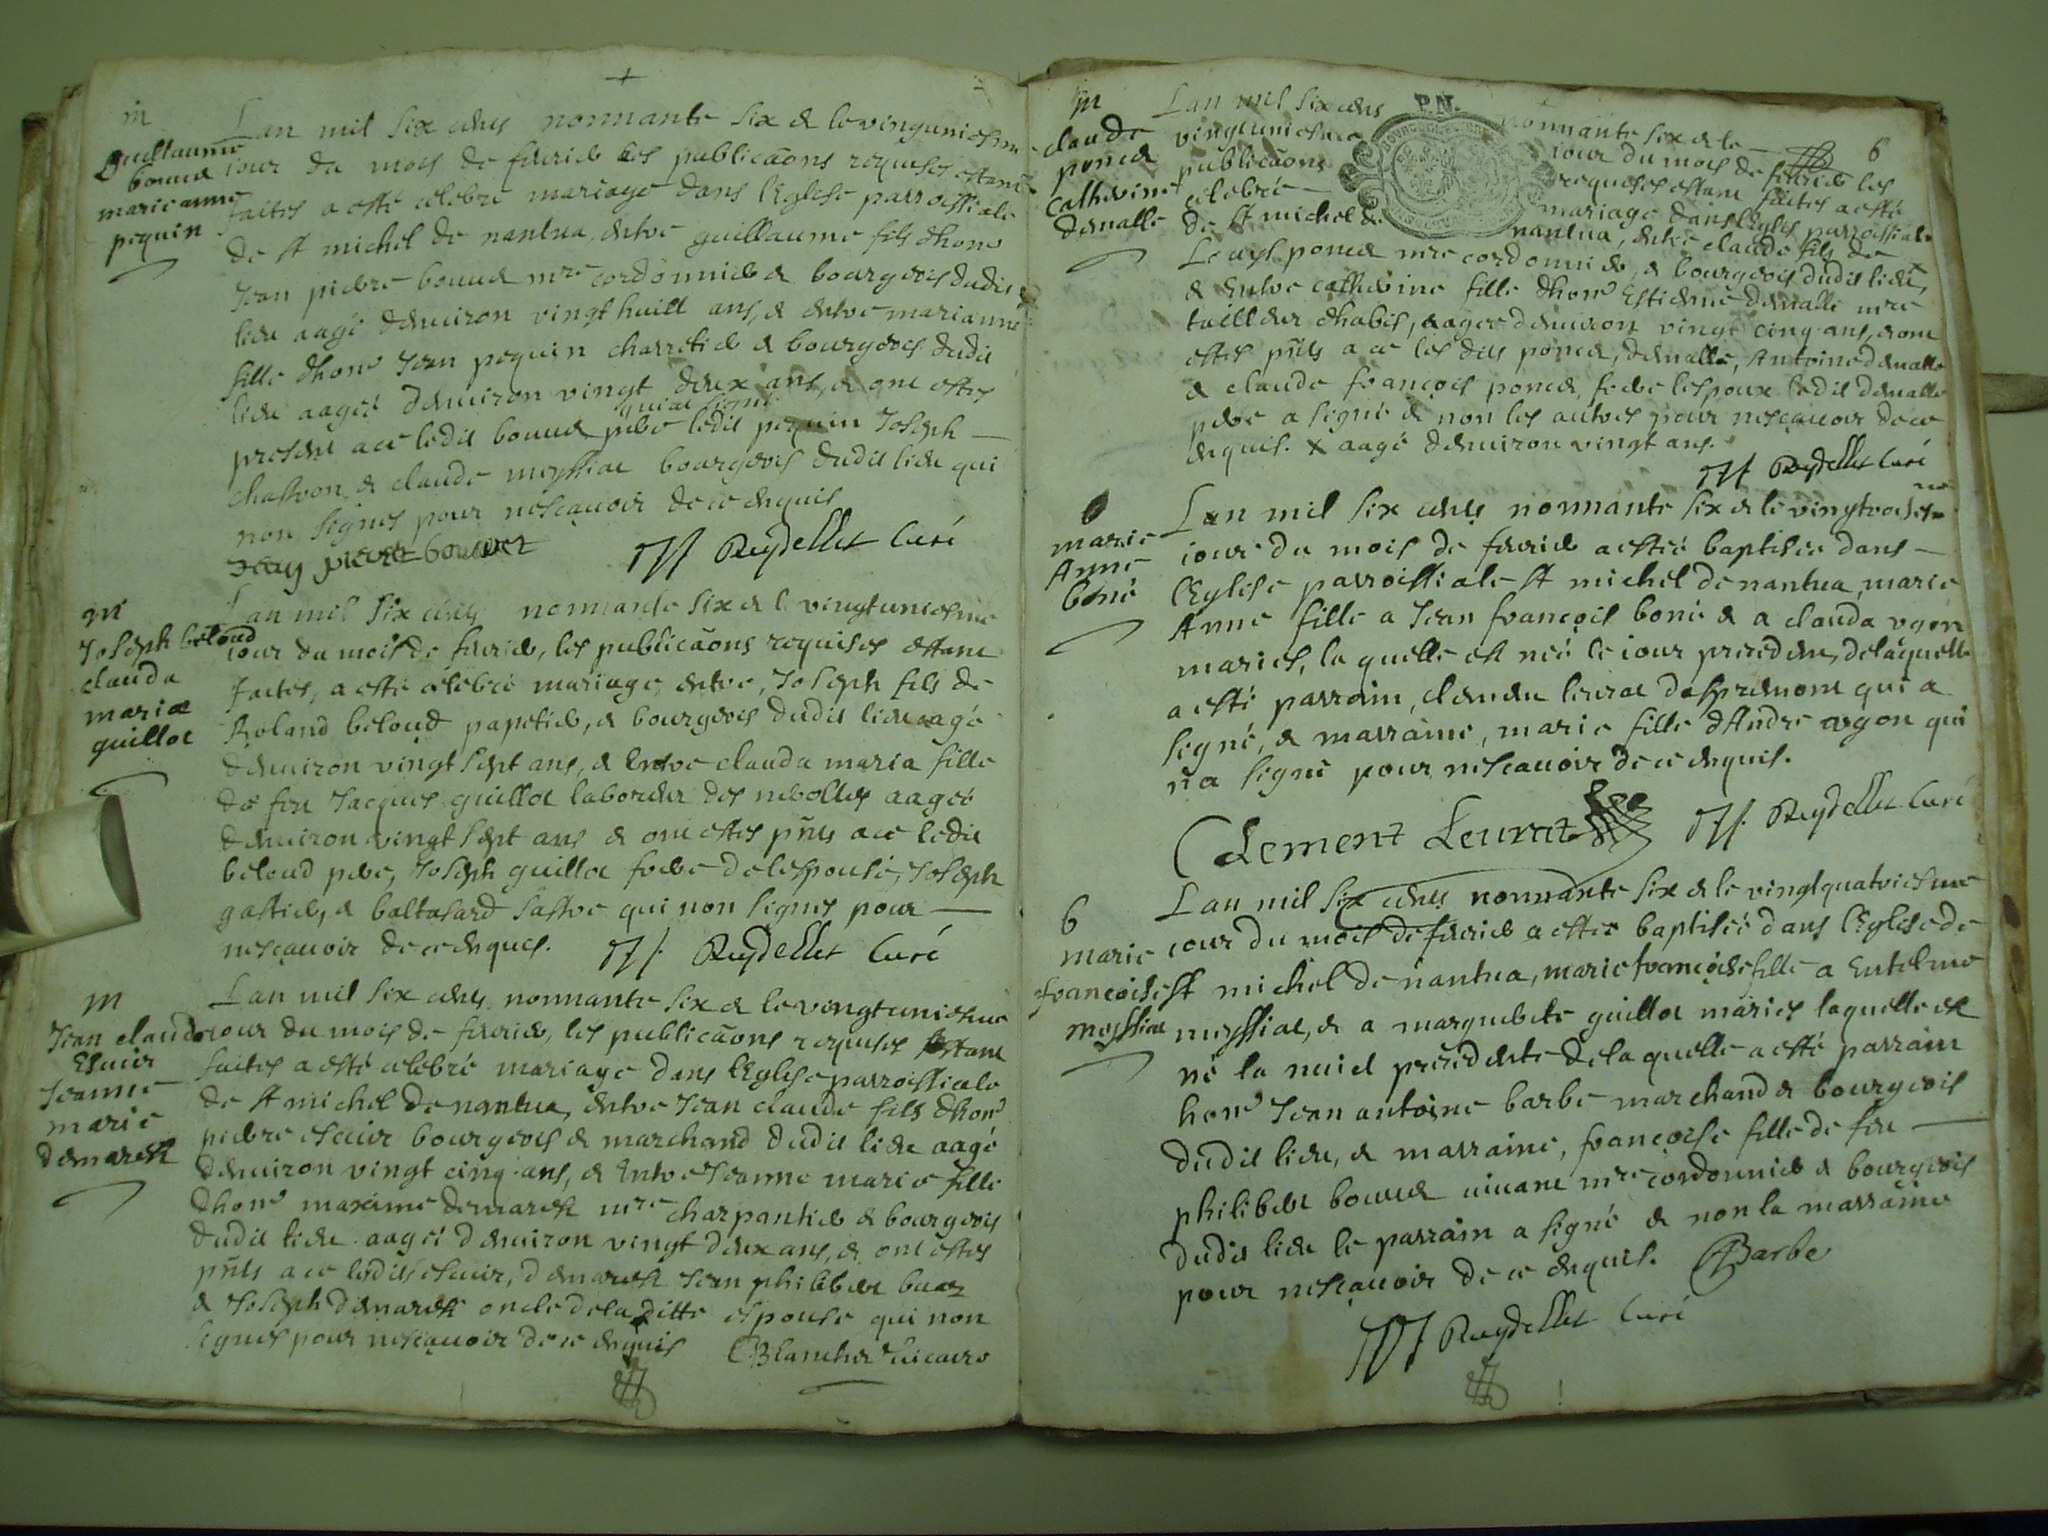 m
Guillaume
bouuet
marieanne
pequin
Lan mil six cents nonnante six & le vingtuniesme
iour du mois de feurier les publicaons requises estant
faites a esté celebré mariage dans l'Eglise parrossiale
de st michel de nantua, entre guillaume fils dhono
Jean pierre bouuet mre cordonnier & bourgeois dudit
lieu aagé denuiron vingt huict ans, & entre marianne
fille dhono Jean pequin charretier & bourgeois dudit
lieu aageé denuiron vingt deux ans, & ont estes
qui a signé
present a ce ledit bouuet pere ledit pequin Joseph
& claude meyssiat bourgeois dudit lieu qui
non signes pour nescauoir de ce enquis
Jean pierre bouuet Reydellet Curé
m
Joseph beloud
clauda
maria
guillot
Lan mil six cents nonnante six & le vingtuniesme
iour du mois de feurier, les publicaons requises estant
faites, a esté celebré mariage, entre, Joseph fils de
Roland beloud papetier, & bourgeois dudit lieu aagé
denuiron vingt sept ans, & Entre clauda maria fille
de feu Jacques guillot laboreur des aageé
denuiron vingt sept ans & ont estes pnts a ce ledit
beloud pere, Joseph guillot frere de lespouse, Joseph
gastier, & baltasard qui non signes pour
nescauoir de ce enques. Reydellet Curé
m
Jean claude
Escuir
Jeanne
marie
demarest
Lan mil six cents nonnante six & le vingtuniesme
iour du mois de feurier, les publicaons requises estant
faites a esté celebré mariage dans l'Eglise parrossiale
de st michel de nantua, entre Jean claude fils dhono
pierre escuir bourgeois & marchand dudit lieu aagé
denuiron vingt cinq ans, & Entre Jeanne marie fille
dhono maxime demarest mre charpantier & bourgeois
dudit lieu aageé denuiron vingt deux ans, & ont estes
pnts a ce lesdits escuir, demarest Jean philibert
& Joseph demarest oncle de la ditte espouse qui non
signes pour nescauoir de ce enquis C Blanchet Vicaire
6
m
claude
poncet
Catherine
deualle
P.N.
Lan mil six cents nonnante six & le
vingtuniesme iour du mois de feurier les
publicaons requises estant faites a esté
celebré mariage dans l'Eglise parrossiale
de st michel de nantua, entre claude fils de
Louys poncet mre cordonnier, & bourgeois dudit lieu, x
& Entre catherine fille dhono Estienne deualle mre
tailleur dhabis, aageé denuiron vingt cinq ans, & ont
estes pnts a ce les dits poncet, deualle, Antoine deualle
& claude françois poncet, frere lespoux ledit deualle
pere a signé & non les autres pour nescauoir de ce
enquis. x aagé denuiron vingt ans.
Reydellet Curé
b
marie
Anne
boné
Lan mil six cents nonnante six & le vingtroisiesme
iour du mois de feurier a esteé baptisée dans
l'Eglise parroissiale st michel de nantua, marie
Anne fille a Jean françois boné & a clauda ugon
maries, la quelle est neé le iour precedent, de laquelle
a esté parrain, clement leurat qui a
signé, & marraine, marie fille dAndre ugon qui
na signé pour nescauoir de ce enquis.
Clement Leurat Reydellet Curé
6
marie
françoise
meyssiat
Lan mil six cents nonnante six & le vingtquatriesme
iour du mois de feurier a esteé baptiseé dans l'Eglise de
st michel de nantua, marie françoise fille a Entelme
meyssiat, & a marguerite guillot maries laquelle est
né la nuict precedente de la quelle a esté parrain
hono Jean antoine barbe marchand & bourgeois
dudit lieu, & marraine, françoise fille de feu
philibert bouuet viuant mre cordonnier & bourgeois
dudit lieu le parrain a signé & non la marraine
pour nescauoir de ce enquis. Barbe
Reydellet Curé